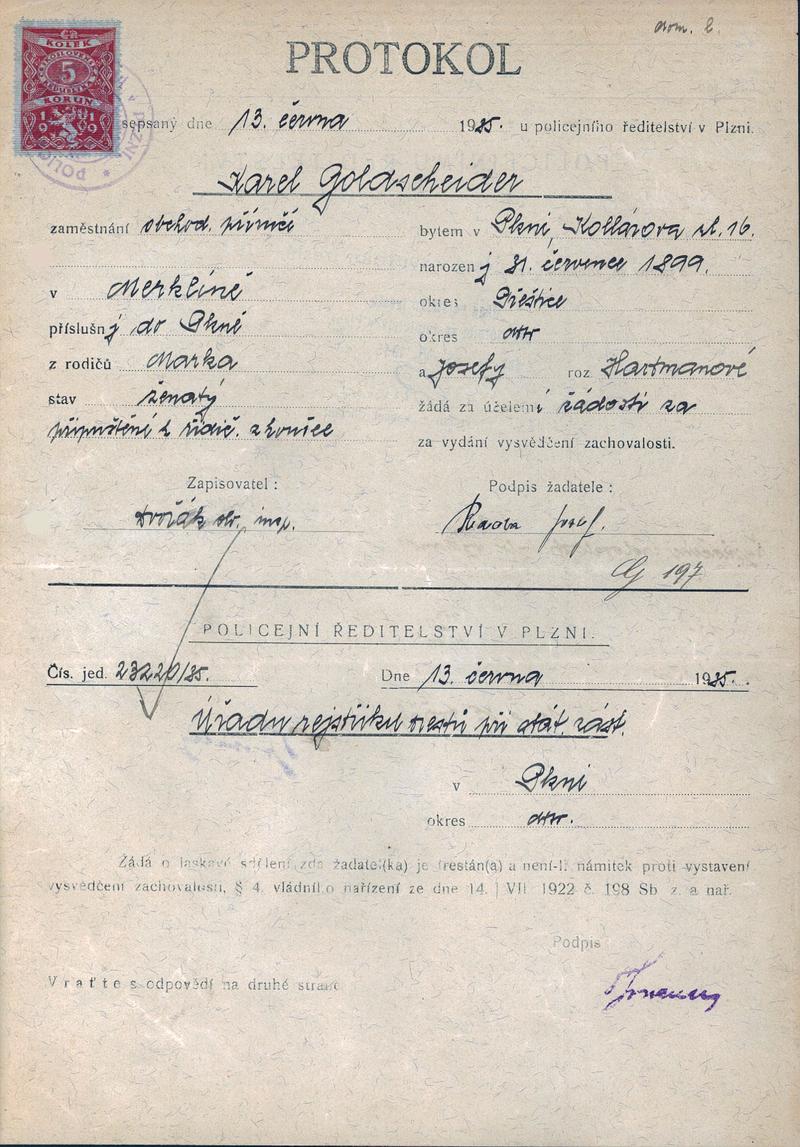 dom. l.
PROTOKOL
KOLEK
ČESKOSLOVENSKÁ
5
KORUN
1919
sepsaný dne 13. června 1935. u policejního ředitelství v Plzni.
Karel Goldscheider
zaměstnání obchod. příručí bytem v Plzni, Kollárova ul. 16.
narozený 31. července 1899.
v Merklíně okres Přeštice
příslušný do Plzně okres dtto
z rodičů Marka a Josefy roz Hartmanové
stav ženatý žádá za účelem žádosti za
připuštění k řidič. zkoušce za vydání vysvědčení zachovalosti.
Zapisovatel : Podpis žadatele :
Dvořák str. insp. Josef.
G 197
POLICEJNÍ ŘEDITELSTVÍ V PLZNI.
Čís. jed. 23220/35. Dne 13. června 1935.
Úřadu rejstříku trestů při stát. zást.
v Plzni
okres dtto.
Žádá o laskavé sdělení, zda žadatel(ka) je trestán(a) a není-li námitek proti vystavení
vysvědčení zachovalosti, § 4. vládního nařízení ze dne 14. VII. 1922 č. 198 Sb z. a nař.
Podpis
Vraťte s odpovědí na druhé straně